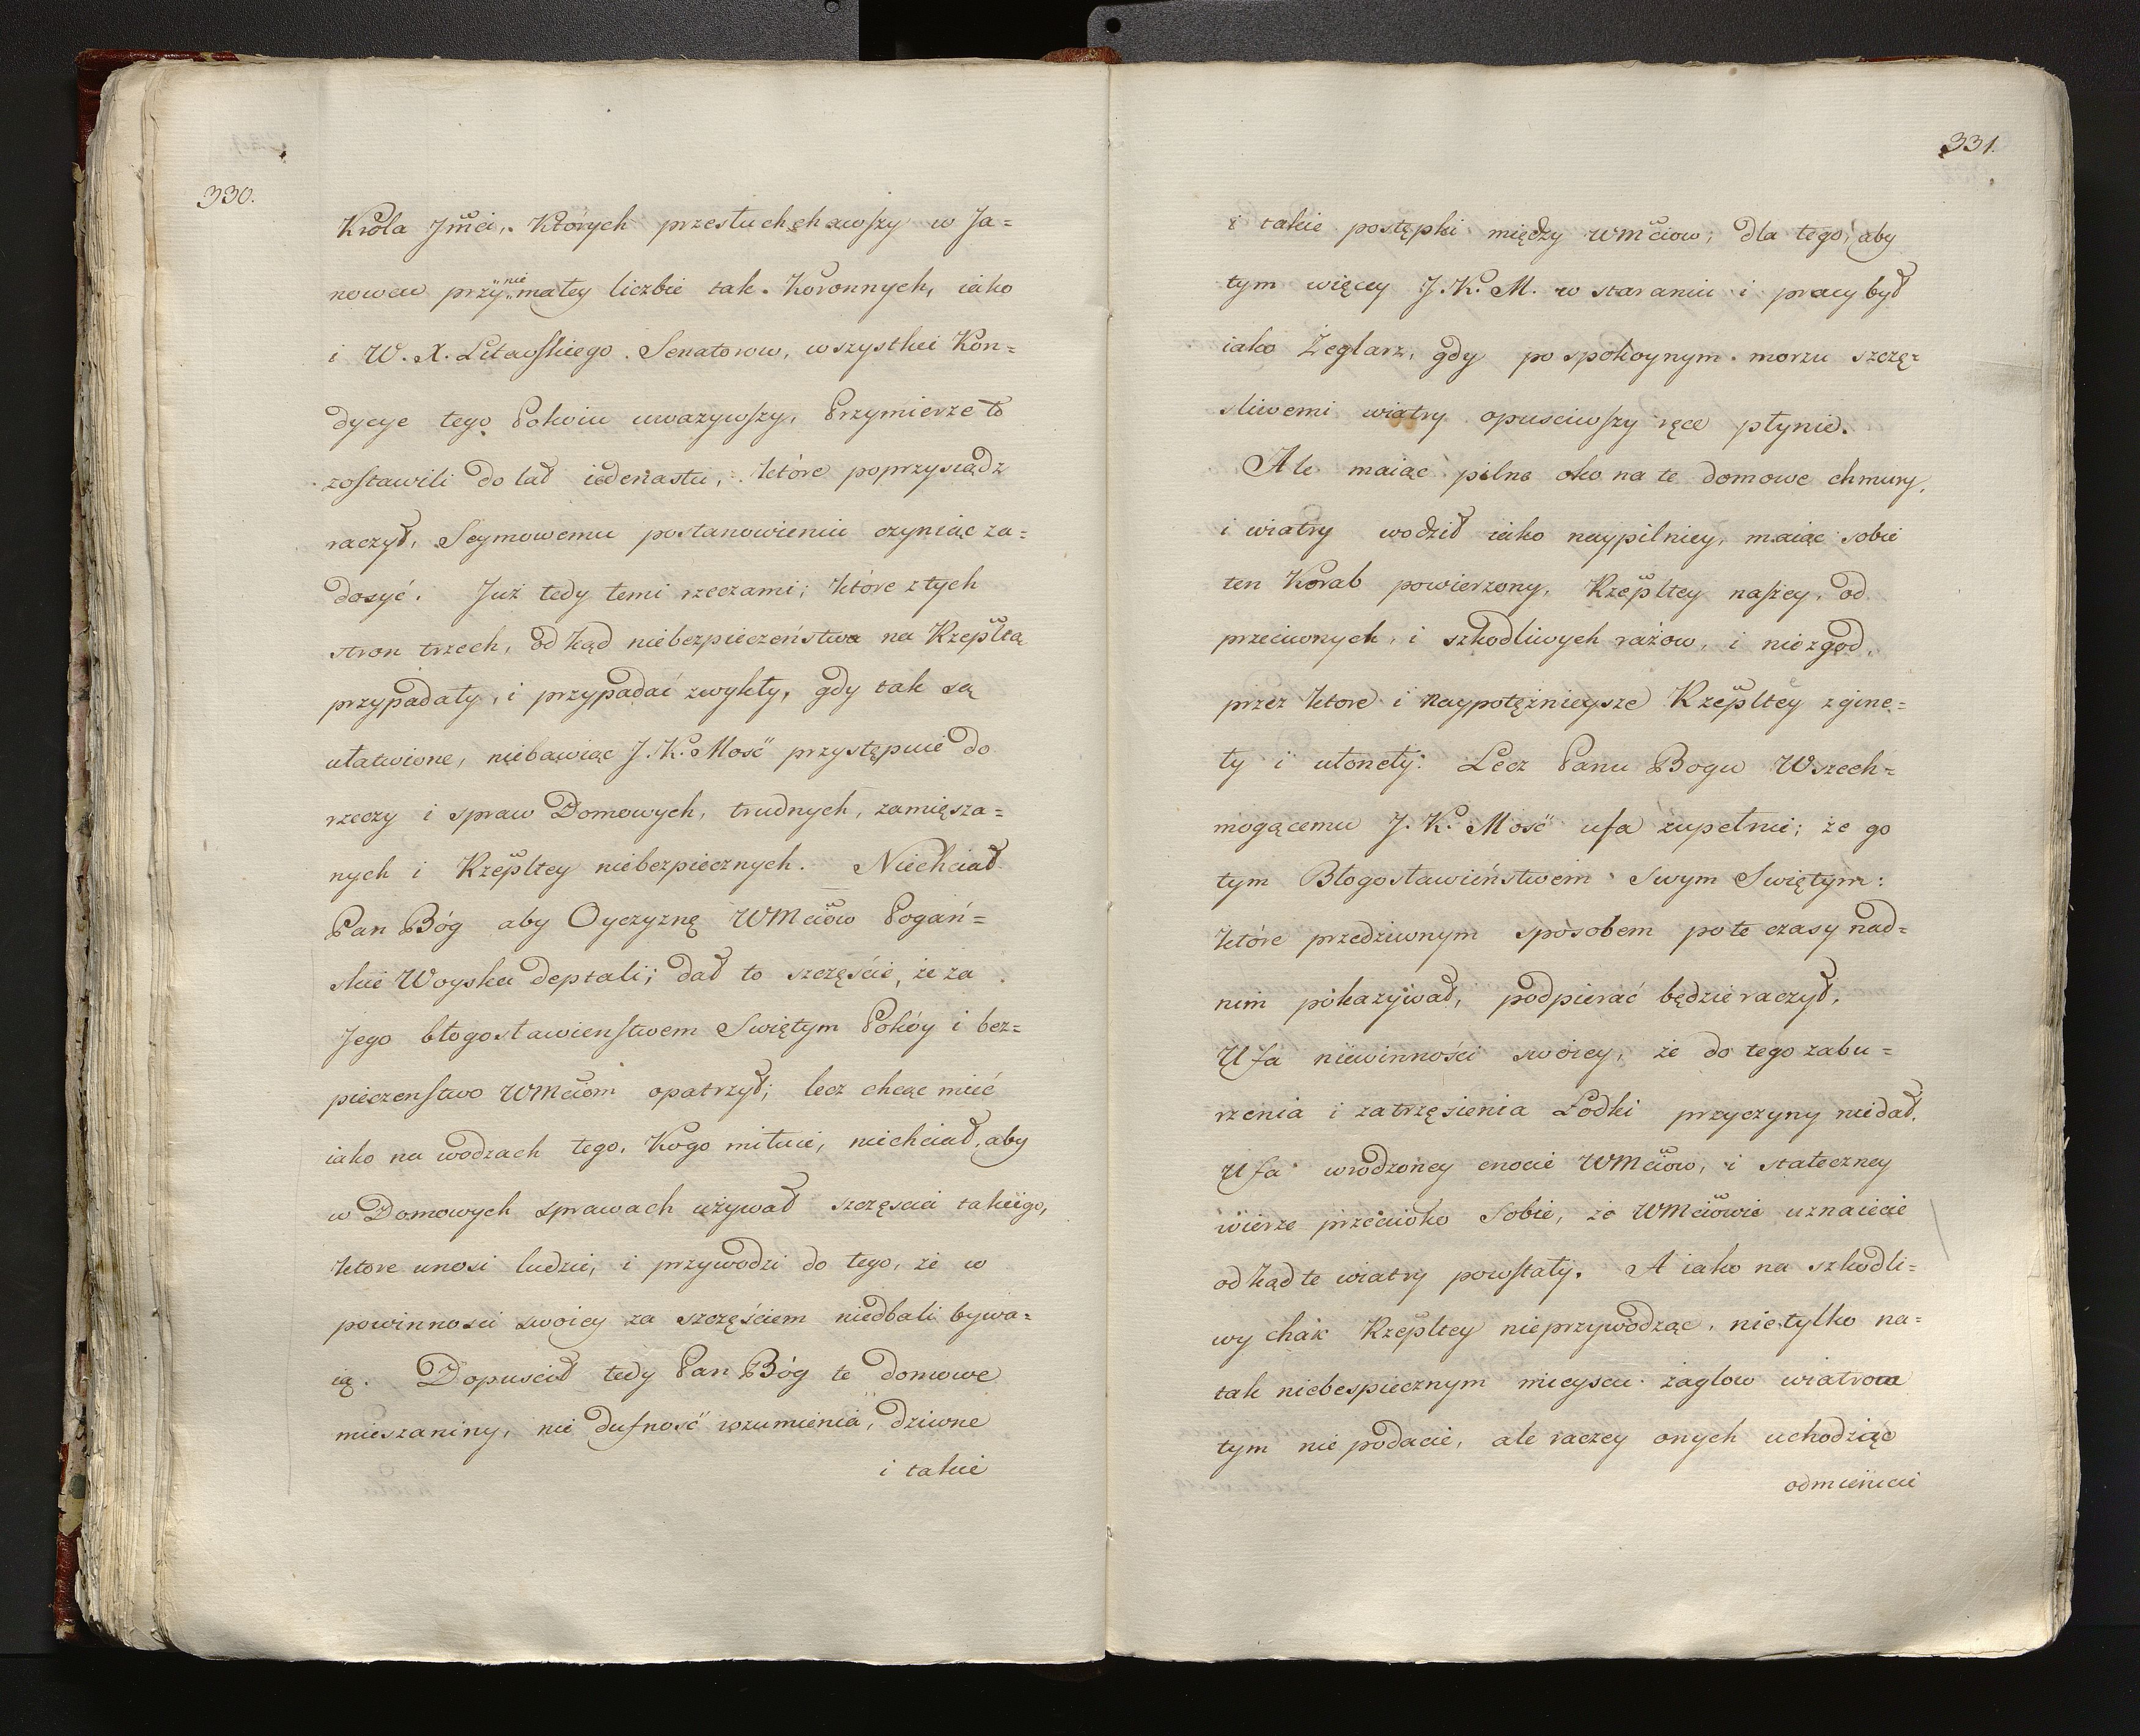 330.
Króla Jmci, Których przesłuchchawszy w Ja=
nowcu przy nie małey liczbie tak Koronnych, iako
i W. X. Litewskiego Senatorow, wszystkie Kon=
dycye tego Pokoiu uwazywszy, Przymierze to
zostawili do lat iedenastu, które poprzysiądz
raczył, Seymowemu postanowieniu czyniąc za=
dosyć. Już tedy temi rzeczami; które z tych
stron trzech, od kąd niebezpieczeństwa na Rzepltą
przypadały, i przypadać zwykły, gdy tak są
ułatwione, niebawiąc J. K. Mość przystępuie do
rzeczy i spraw Domowych, trudnych, zamięsza=
nych i Rzepltey niebezpiecznych. Niechciał
Pan Bóg aby Oyczyznę WMciów Pogań=
skie Woyska deptali; dał to szczęście, że za
Jego błogosławienstwem Swiętym Pokóy i bez=
pieczenstwo WMciom opatrzył; lecz chcąc mieć
iako na wodzach tego, Kogo miłuie, niechciał, aby
w Domowych sprawach używał szczęscia takiego,
ktore unosi ludzie, i przywodzi do tego, że w
powinnosci swoiey za szczęściem niedbali bywa=
ią. Dopuscił tedy Pan Bóg te domowe
mieszaniny, nie dufność rozumienia, dziwne
i takie
331.
i takie postępki między WMciow; dla tego, aby
tym więcey J. K. M. w staraniu i pracy był
iako Żeglarz, gdy po spokoynym morzu szczę=
sliwemi wiatry opusciwszy ręce płynie.
Ale maiąc pilne oko na te domowe chmury,
i wiatry wodził iako naypilniey, maiąc sobie
ten Korab powierzony, Rzepltey naszey, od
przeciwnych, i szkodliwych rażow, i niezgod,
przez ktore i naypotężnieysze Rzepltey zgine=
ły i utoneły. Lecz Panu Bogu Wszech=
mogącemu J. K. Mość ufa zupełnie; że go
tym Błogosławieństwem Swym Swiętym:
które przedziwnym sposobem po te czasy nad=
nim pokazywał, podpierać będzie raczył,
Ufa niewinności swoiey, że do tego zabu=
rzenia i zatrzęsienia Łodki przyczyny niedał.
Ufa wrodzoney cnocie WMciow, i stateczney
wierze przeciwko sobie, że WMciowie uznaiecie
od kąd te wiatry powstały. A iako na szkodli=
wy chak Rzepltey nieprzywodząc, nietylko na=
tak niebespiecznym mieyscu żaglow wiatrow
tym nie podacie, ale raczey onych uchodziąc
odmienicie